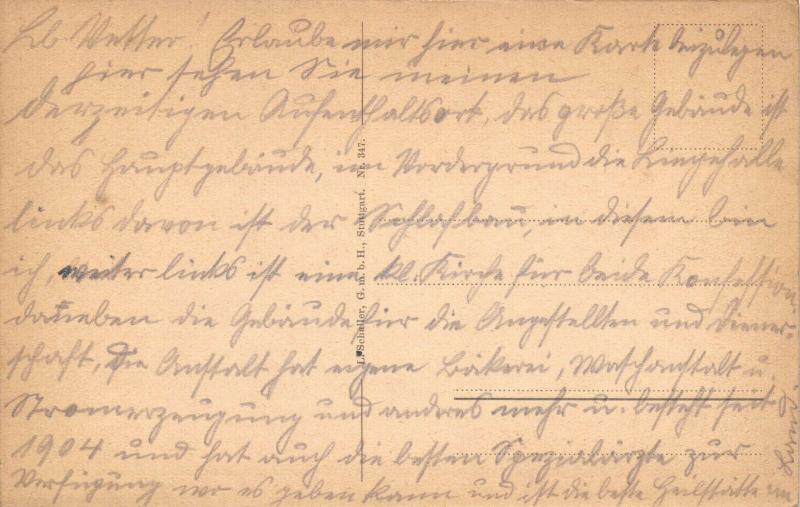 Lb. Vetter! Erlaube mir hier eine Karte beizulegen
hier sehen Sie meinen
derzeitigen Aufenthaltsort, das große Gebäude ist
das Hauptgebäude, im Vordergrund die Liegehalle
links davon ist der Schlafbau, in diesem bin
ich, weiter links ist eine kl. Kirche für beide Konfession
daneben die Gebäude für die Angestellten und Diener-
schaft, Die Anstalt hat eigene Bäkerei, Waschanstalt u.
Stromerzeugung und anderes mehr u. besteht seit
1904 und hat auch die besten Spezialärzte zur
Verfügung wo es geben kann und ist die beste Heilstätte im
Land.
L. Schaller, G. m. b. H., Stuttgart. Nr. 347.